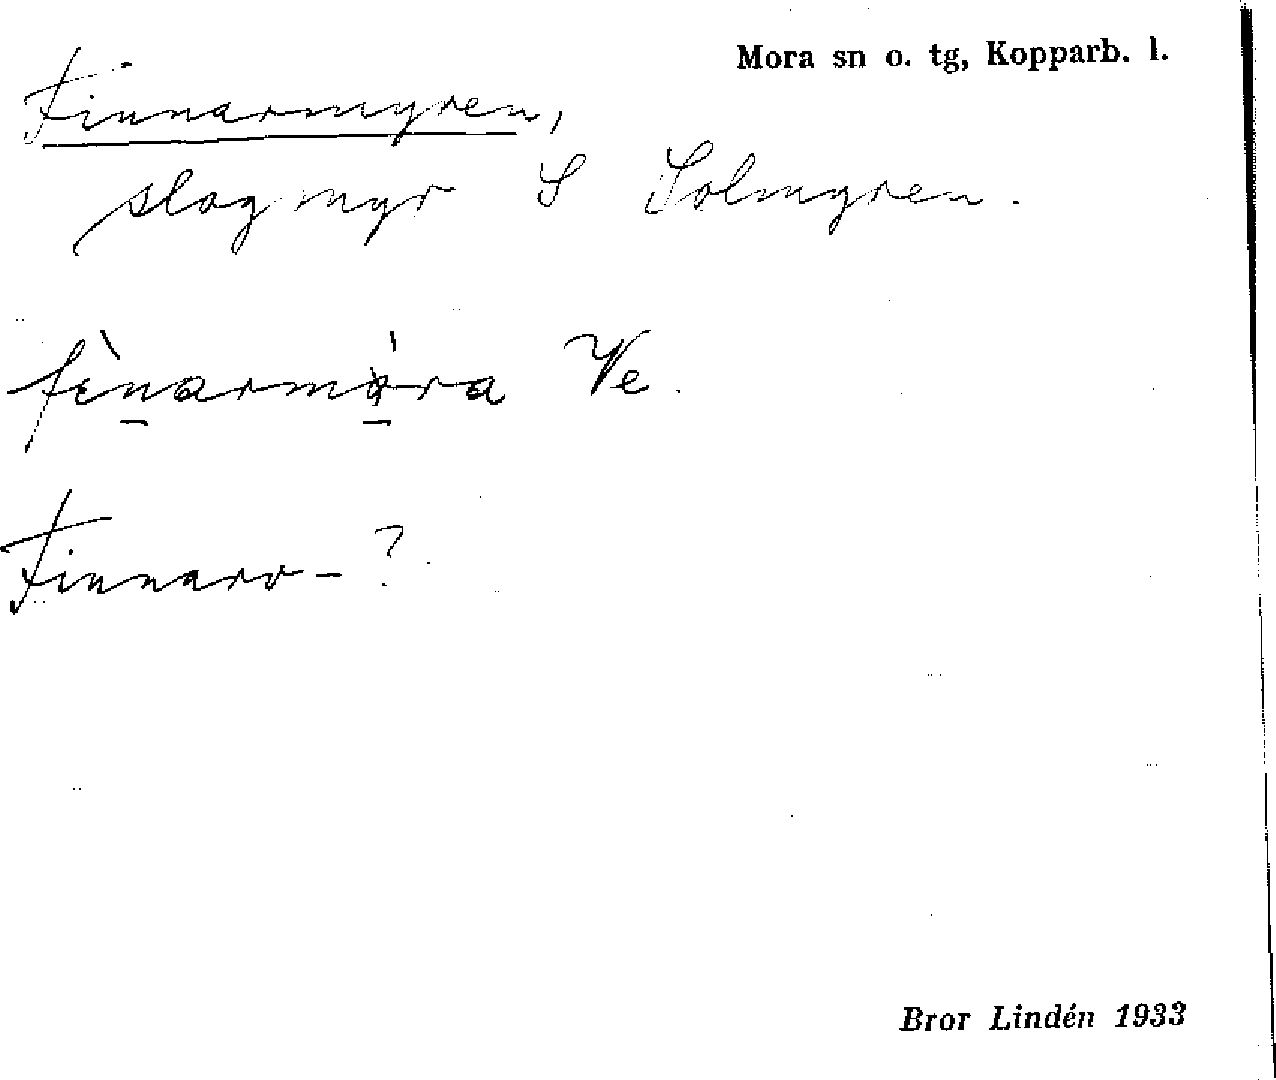 Mora sn o. tg, Kopparb. l.
Finnarmyren,
slogmyr S Solmyren.
fѐnarmøra Ve.
Finnarv-?
Bror Lindén 1933